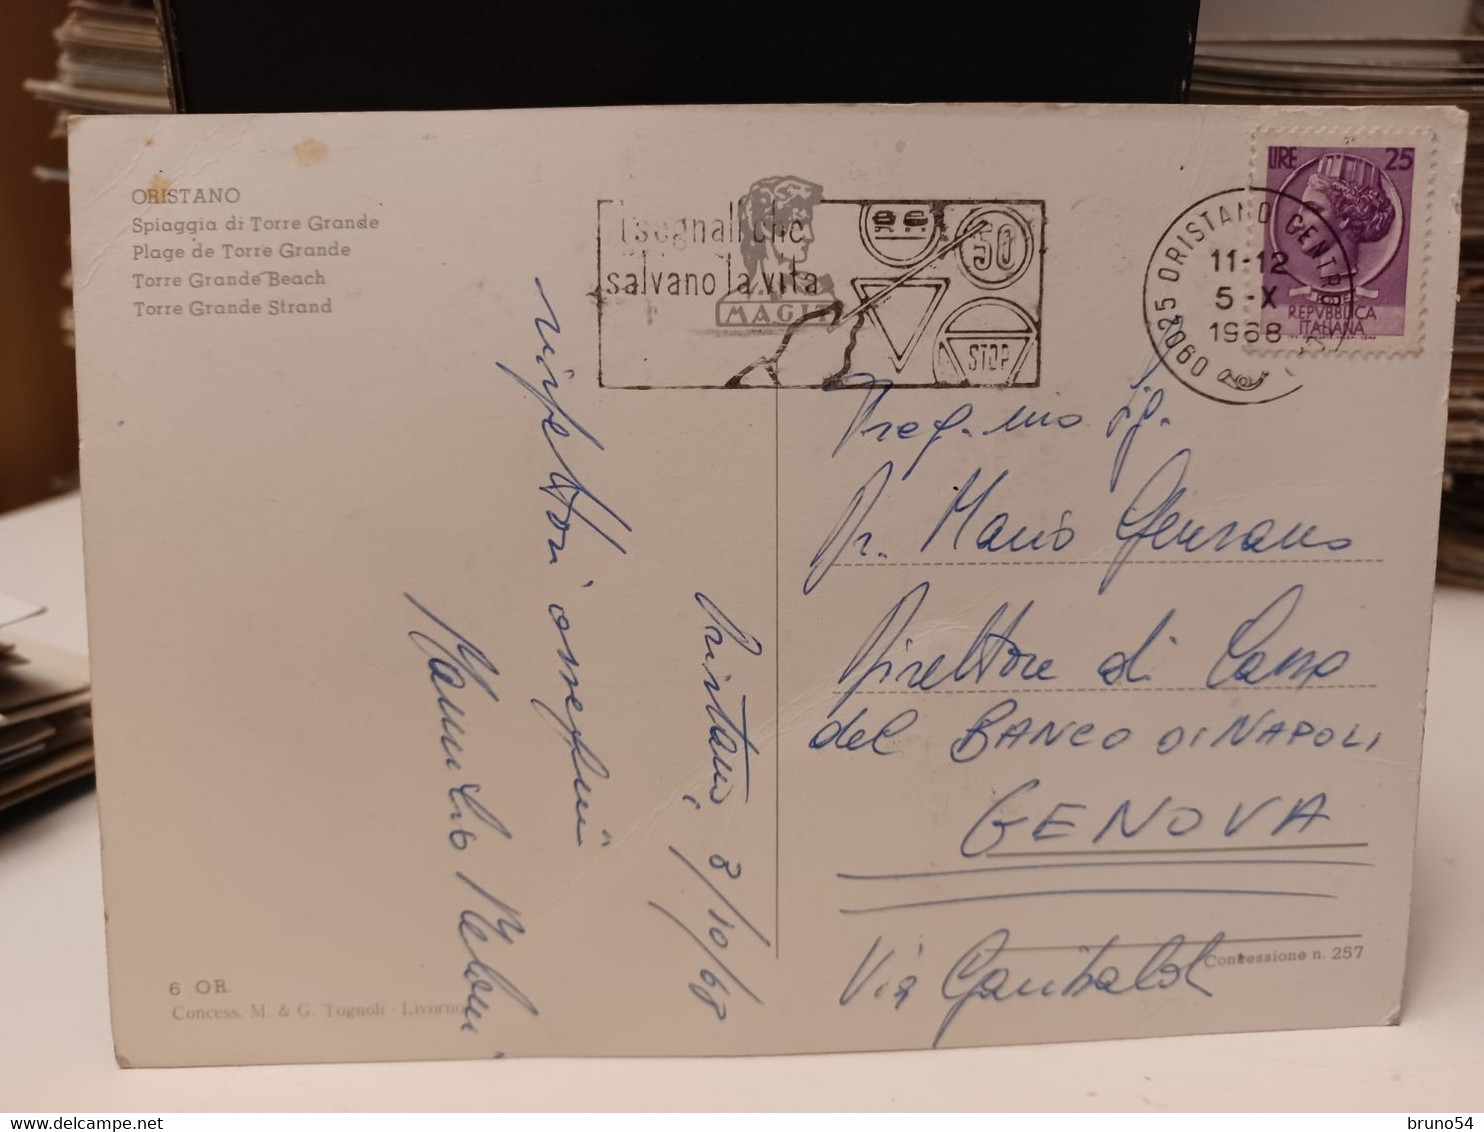 ORISTANO
Spiaggia di Torre Grande
Plage de Torre Grande
Torre Grande Beach
Torre Grande Strand
i segnali che
salvano la vita
MAGIT
50
STOP
LIRE 25
REPVBBLICA
ITALIANA
09025 ORISTANO CENTRO
11-12
5-X
1968
Preg.mo Sig.
Dr. Mario Genzano
Direttore di Cassa
del BANCO DI NAPOLI
GENOVA
Via Garibaldi
Oristano, 3/10/68
rispettosi ossequi
Meloni
6 OR.
Concess. M. & G. Tognoli - Livorno
Concessione n. 257
bruno54